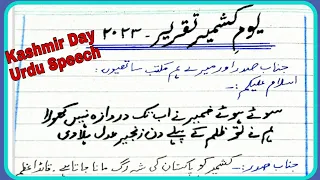 یوم کشمیر تقریر۔ ۲۰۲۳
Kashmir Day
Urdu Speech
جناب صدر اور میرے ہم مکتب ساتھیوں :
اسلام علیکم :
سوئے ہوئے ضمیر نے اب تک دروازہ نہیں کھولا
ہم نے تو ظلم کے پہلے دن زنجیر عدل ہلا دی
جناب صدر :- کشمیر کو پاکستان کی شہ رگ مانا جاتا ہے۔ قائد اعظم